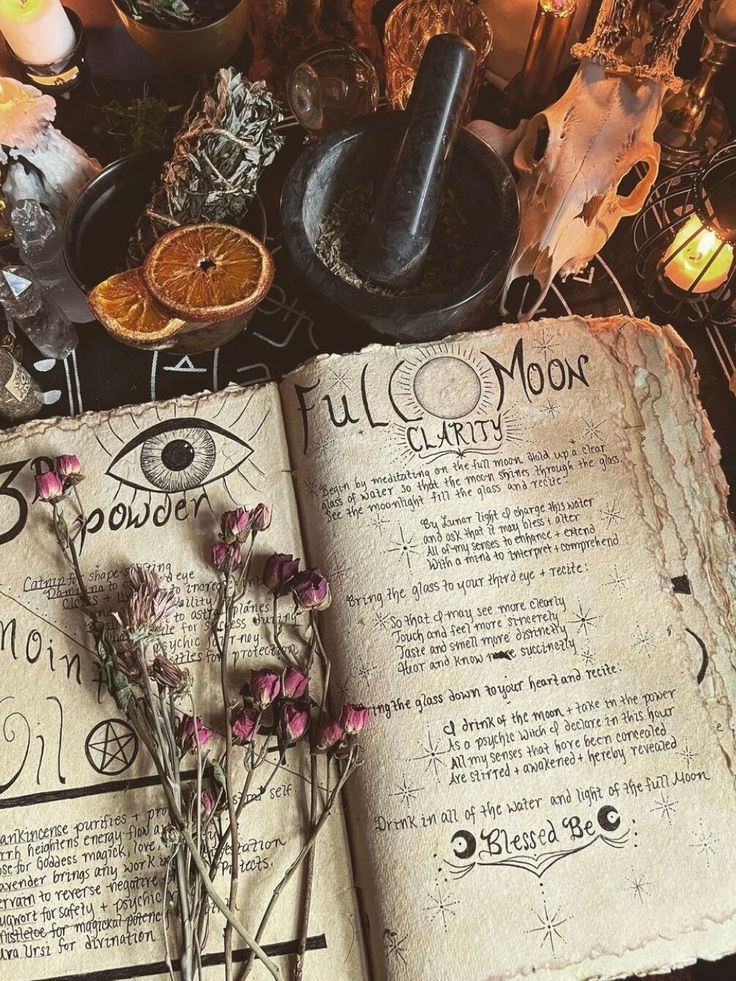 3RD
powder
Catnip for shape shifting
eye
to increase
to astral planes
for psychic journey
Nettles for protection
Anointing
Oil
self
Frankincense purifies + pro
Myrrh heightens energy flow
Rose for Goddess magick, love,
Lavender brings any work in manifestation
Vervain to reverse negative
Protects.
Mugwort for safety + psychic
Mistletoe for magickal potency
Uva Ursi for divination
FULL MOON
CLARITY
Begin by meditating on the full moon. Hold up a clear
glass of water so that the moon shines through the glass.
See the moonlight fill the glass and recite:
By Lunar light I charge this water
and ask that it may bless + alter
All of my senses to enhance + extend
With a mind to interpret + comprehend
Bring the glass to your third eye + recite:
So that I may see more clearly
Touch and feel more sincerely
Taste and smell more distinctly
Hear and know more succinctly
Bring the glass down to your heart and recite:
I drink of the moon + take in the power
As a psychic which I declare in this hour
All my senses that have been concealed
Are stirred + awakened + hereby revealed
Drink in all of the water and light of the full Moon
Blessed Be